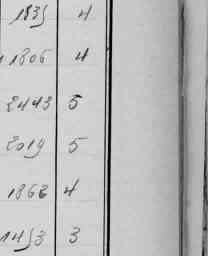 1835 4
1806 4
2443 5
2019 5
1862 4
1453 3